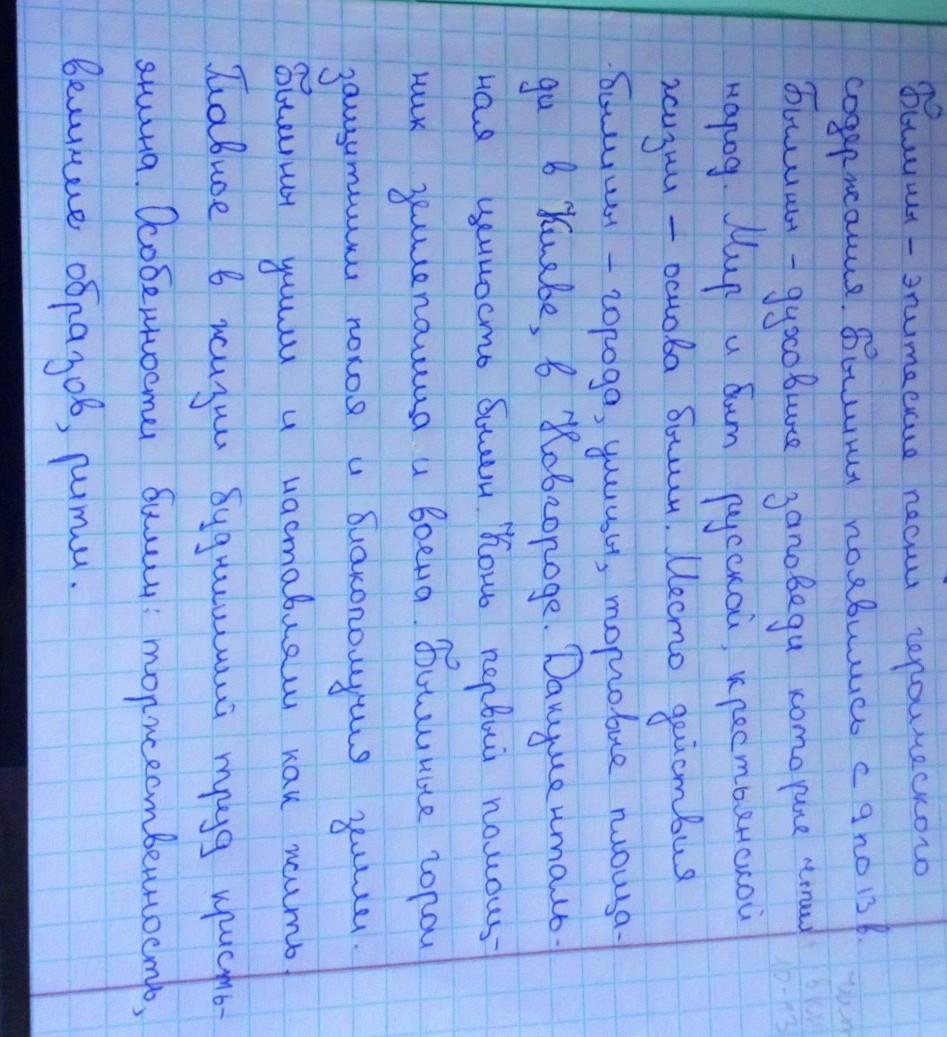 Былины – эпитаские песни героического
содержания. Былины появились с 9 по 13 в.
Былины – духовные заповеди которые чтил
народ. Мир и быт русской, крестьянской
жизни – основа былин. Место действия
былины – города, улицы, торговые площа-
ди в Киеве, в Новгороде. Дакументаль-
ная ценность былин. Конь первый помощ-
ник землепашца и воена. Былинные герои
защитники покоя и блакополучия земли.
Былины учили и наставляли как жить.
Главное в жизни будничний труд кристь-
янина. Особенности былин: торжественность,
величие образов, ритм.